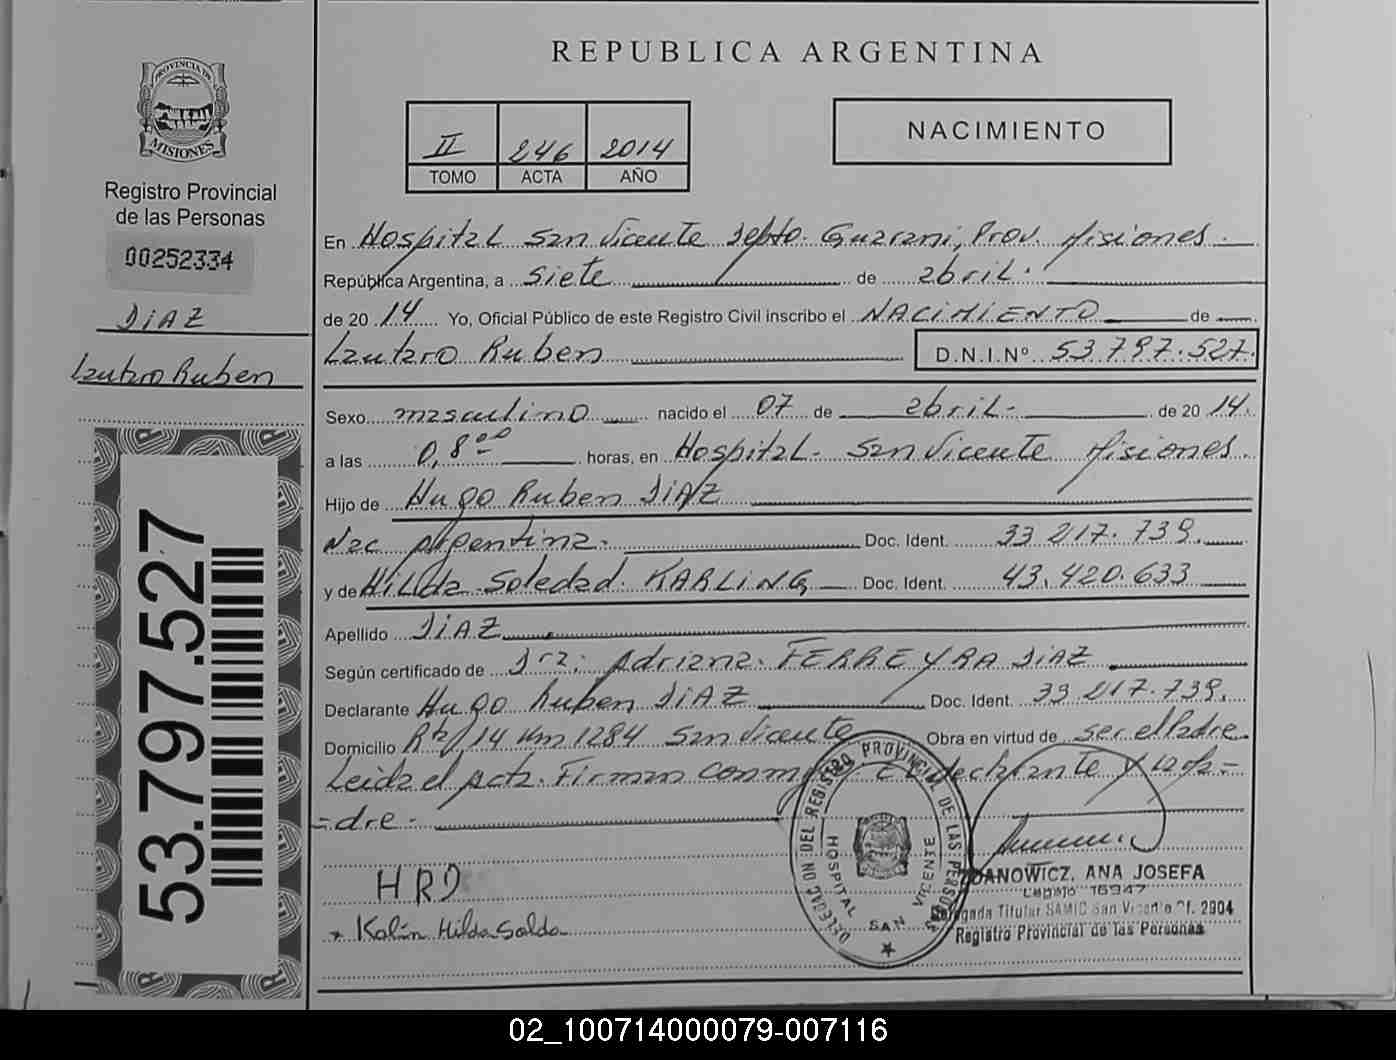 PROVINCIA DE
MISIONES
Registro Provincial
de las Personas
00252334
DIAZ
Lautaro Ruben
53.797.527
REPUBLICA ARGENTINA
II 246 2014
TOMO ACTA AÑO
NACIMIENTO
En Hospital San Vicente Depto. Guarani, Prov. Misiones.
República Argentina, a siete de abril.
de 20 14 Yo, Oficial Público de este Registro Civil inscribo el NACIMIENTO de
Lautaro Ruben D.N.I.Nº 53.797.527.
Sexo masculino nacido el 07 de abril- de 20 14.
a las 0,8ºº horas, en Hospital- San Vicente Misiones.
Hijo de Hugo Ruben DIAZ
Nac Argentina. Doc. Ident. 33 217.739.
y de Hilda Soledad. KARLING Doc. Ident. 43.420.633
Apellido DIAZ
Según certificado de Dra. Adriana. FERREYRA DIAZ
Declarante Hugo Ruben DIAZ Doc. Ident. 33 217.739.
Domicilio 14 Km 1284 San Vicente Obra en virtud de ser el Padre
Leida el Acta. Firman conmigo El declarante y la
-dre-
DELEGACION DEL REGISTRO PROVINCIAL DE LAS PERSONAS
HOSPITAL SAN VICENTE
HRD
ANA JOSEFA
Legajo 16947
Titular SAMIC San Vicente Of. 2904
Registro Provincial de las Personas
Hilda
02_100714000079-007116